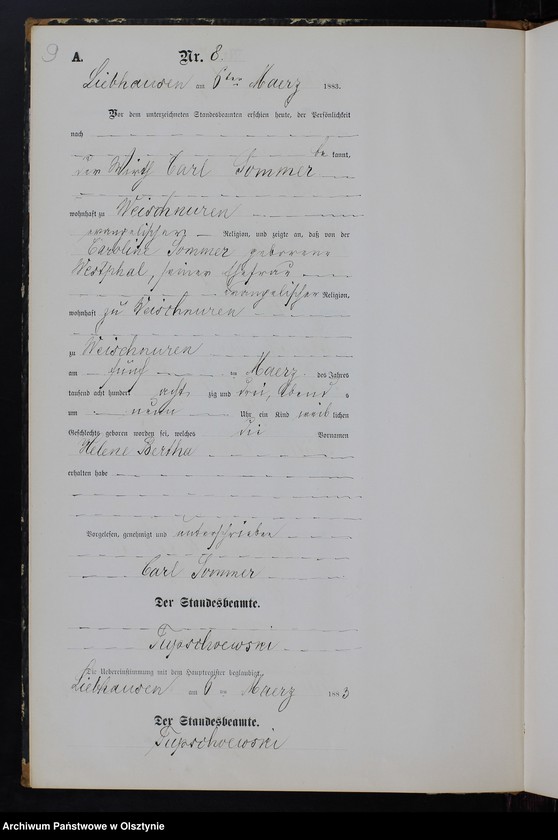 9
A. Nr. 8.
Liebhausen am 6ten Maerz 1883.
Vor dem unterzeichneten Standesbeamten erschien heute, der Persönlichkeit
nach
be kannt,
der Wirth Carl Sommer
wohnhaft zu Weischnuren
evangelischer Religion, und zeigte an, daß von der
Caroline Sommer geborene
Westphal, seiner Ehefrau
evangelischer Religion,
wohnhaft zu Weischnuren
zu Weischnuren
am fünf ten Maerz des Jahres
tausend acht hundert acht zig und drei, Abends
um neun Uhr ein Kind weib lichen
Geschlechts geboren worden sei, welches die Vornamen
Helene Bertha
erhalten habe
Vorgelesen, genehmigt und unterschrieben
Carl Sommer
Der Standesbeamte.
Die Uebereinstimmung mit dem Hauptregister beglaubigt
Liebhausen am 6 ten Maerz 1883
Der Standesbeamte.
Archiwum Państwowe w Olsztynie